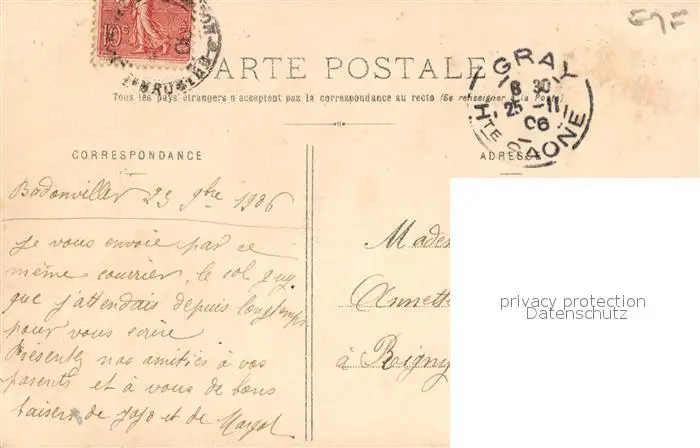 E9F
10c
CARTE POSTALE
GRAY
8 30
25 -11
06
Hte SAONE
Tous les pays étrangers n'acceptent pas la correspondance au recto (Se renseigner à la Poste)
CORRESPONDANCE
ADRESSE
Badonviller 23 9bre 1906
Je vous envoie par ce
même courrier, le col guy
que j'attendais depuis longtemps
pour vous écrire
Présentez nos amitiés à vos
parents et à vous de bons
baisers de Jojo et de Margot
Mades
Annett
à Rigny
privacy protection
Datenschutz